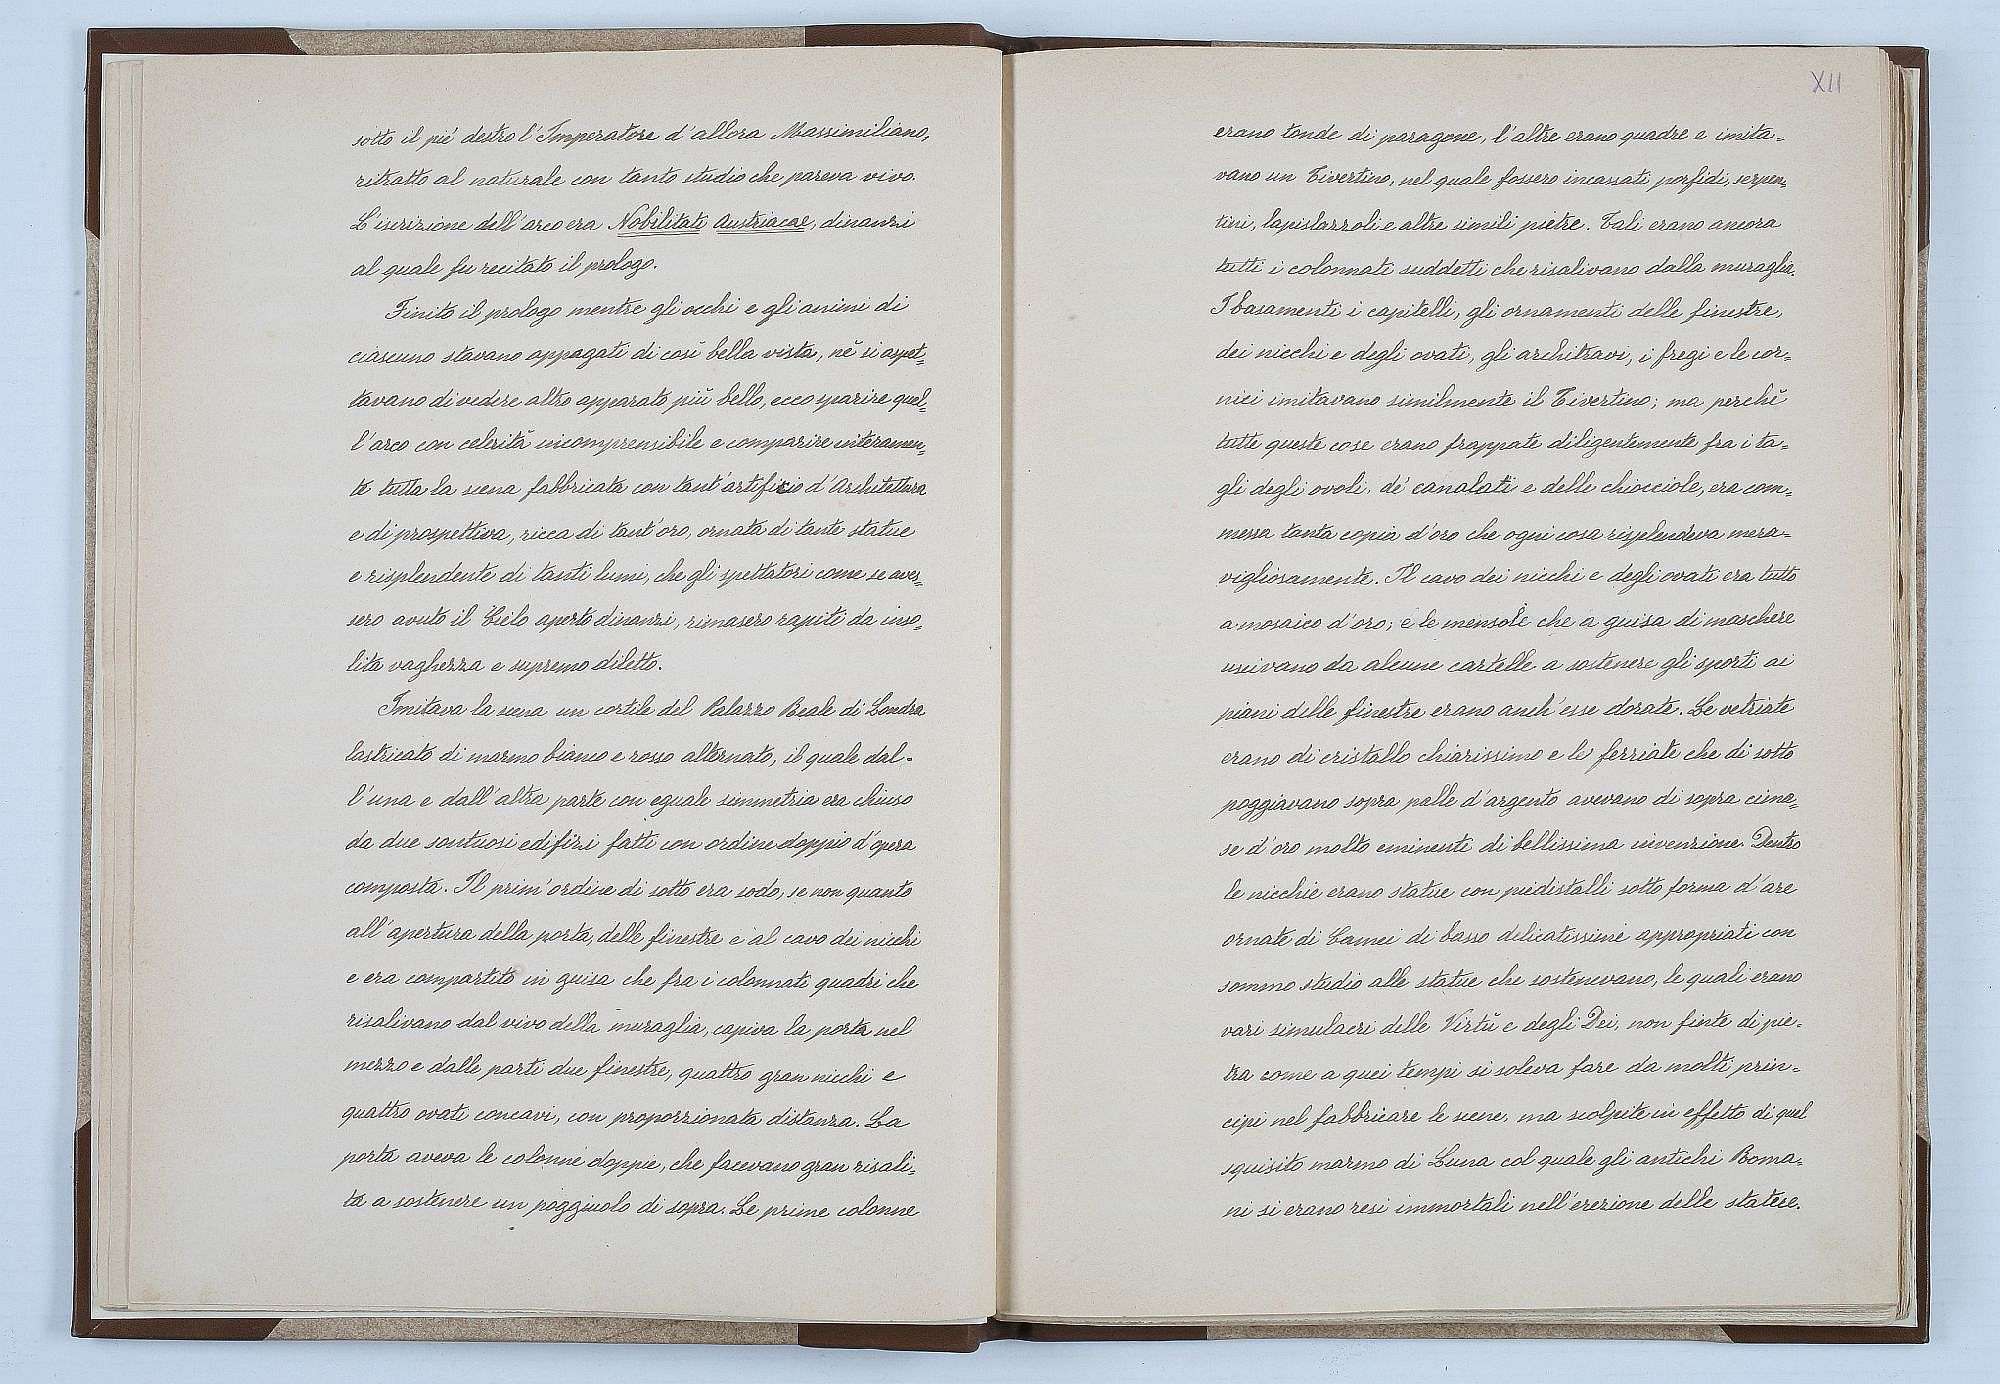 sotto il piè destro l'Imperatore d'allora Massimiliano,
ritratto al naturale con tanto studio che pareva vivo.
L'iscrizione dell'arco era Nobilitati Austriacae, dinanzi
al quale fu recitato il prologo.
Finito il prologo mentre gli occhi e gli animi di
ciascuno stavano appagati di così bella vista, nè si aspet-
tavano di vedere altro apparato più bello, ecco sparire quel-
l'arco con celerità incomprensibile e comparire interamen-
te tutta la scena fabbricata con tant'artificio d'Architettura
e di prospettiva, ricca di tant'oro, ornata di tante statue
e risplendente di tanti lumi, che gli spettatori come se aves-
sero avuto il Cielo aperto dinanzi, rimasero rapiti da inso-
lita vaghezza e supremo diletto.
Imitava la scena un cortile del Palazzo Reale di Londra
lastricato di marmo bianco e rosso alternato, il quale dal-
l'una e dall'altra parte con eguale simmetria era chiuso
da due sontuosi edifizi fatti con ordine doppio d'opera
composta. Il prim'ordine di sotto era sodo, se non quanto
all'apertura della porta, delle finestre e al cavo dei nicchi
e era compartito in guisa che fra i colonnati quadri che
risalivano dal vivo della muraglia, capiva la porta nel
mezzo e dalle parti due finestre, quattro gran nicchi e
quattro ovati concavi, con proporzionata distanza. La
porta aveva le colonne doppie, che facevano gran risali-
ta a sostenere un poggiuolo di sopra. Le prime colonne
XII
erano tonde di paragone, l'altre erano quadre e imita-
vano un Tivertino, nel quale fossero incassati porfidi, serpen-
tini, lapislazzoli e altre simili pietre. Tali erano ancora
tutti i colonnati suddetti che risalivano dalla muraglia.
I basamenti i capitelli, gli ornamenti delle finestre,
dei nicchi e degli ovati, gli architravi, i fregi e le cor-
nici imitavano similmente il Tivertino; ma perchè
tutte queste cose erano frappate diligentemente fra i ta-
gli degli ovoli, de' canalati e delle chiocciole, era com-
messa tanta copia d'oro che ogni cosa risplendeva mera-
vigliosamente. Il cavo dei nicchi e degli ovati era tutto
a mosaico d'oro; e le mensole che a guisa di maschere
uscivano da alcune cartelle a sostenere gli sporti ai
piani delle finestre erano anch'esse dorate. Le vetriate
erano di cristallo chiarissimo e le ferriate che di sotto
poggiavano sopra palle d'argento avevano di sopra cima-
se d'oro molto eminenti di bellissima invenzione. Dentro
le nicchie erano statue con piedistalli sotto forma d'are
ornate di Camei di basso delicatissime appropriati con
sommo studio alle statue che sostenevano, le quali erano
vari simulacri delle Virtù e degli Dei, non finte di pie-
tra come a quei tempi si soleva fare da molti prin-
cipi nel fabbricare le scene, ma scolpite in effetto di quel
squisito marmo di Luna col quale gli antichi Roma-
ni si erano resi immortali nell'erezione delle statue.